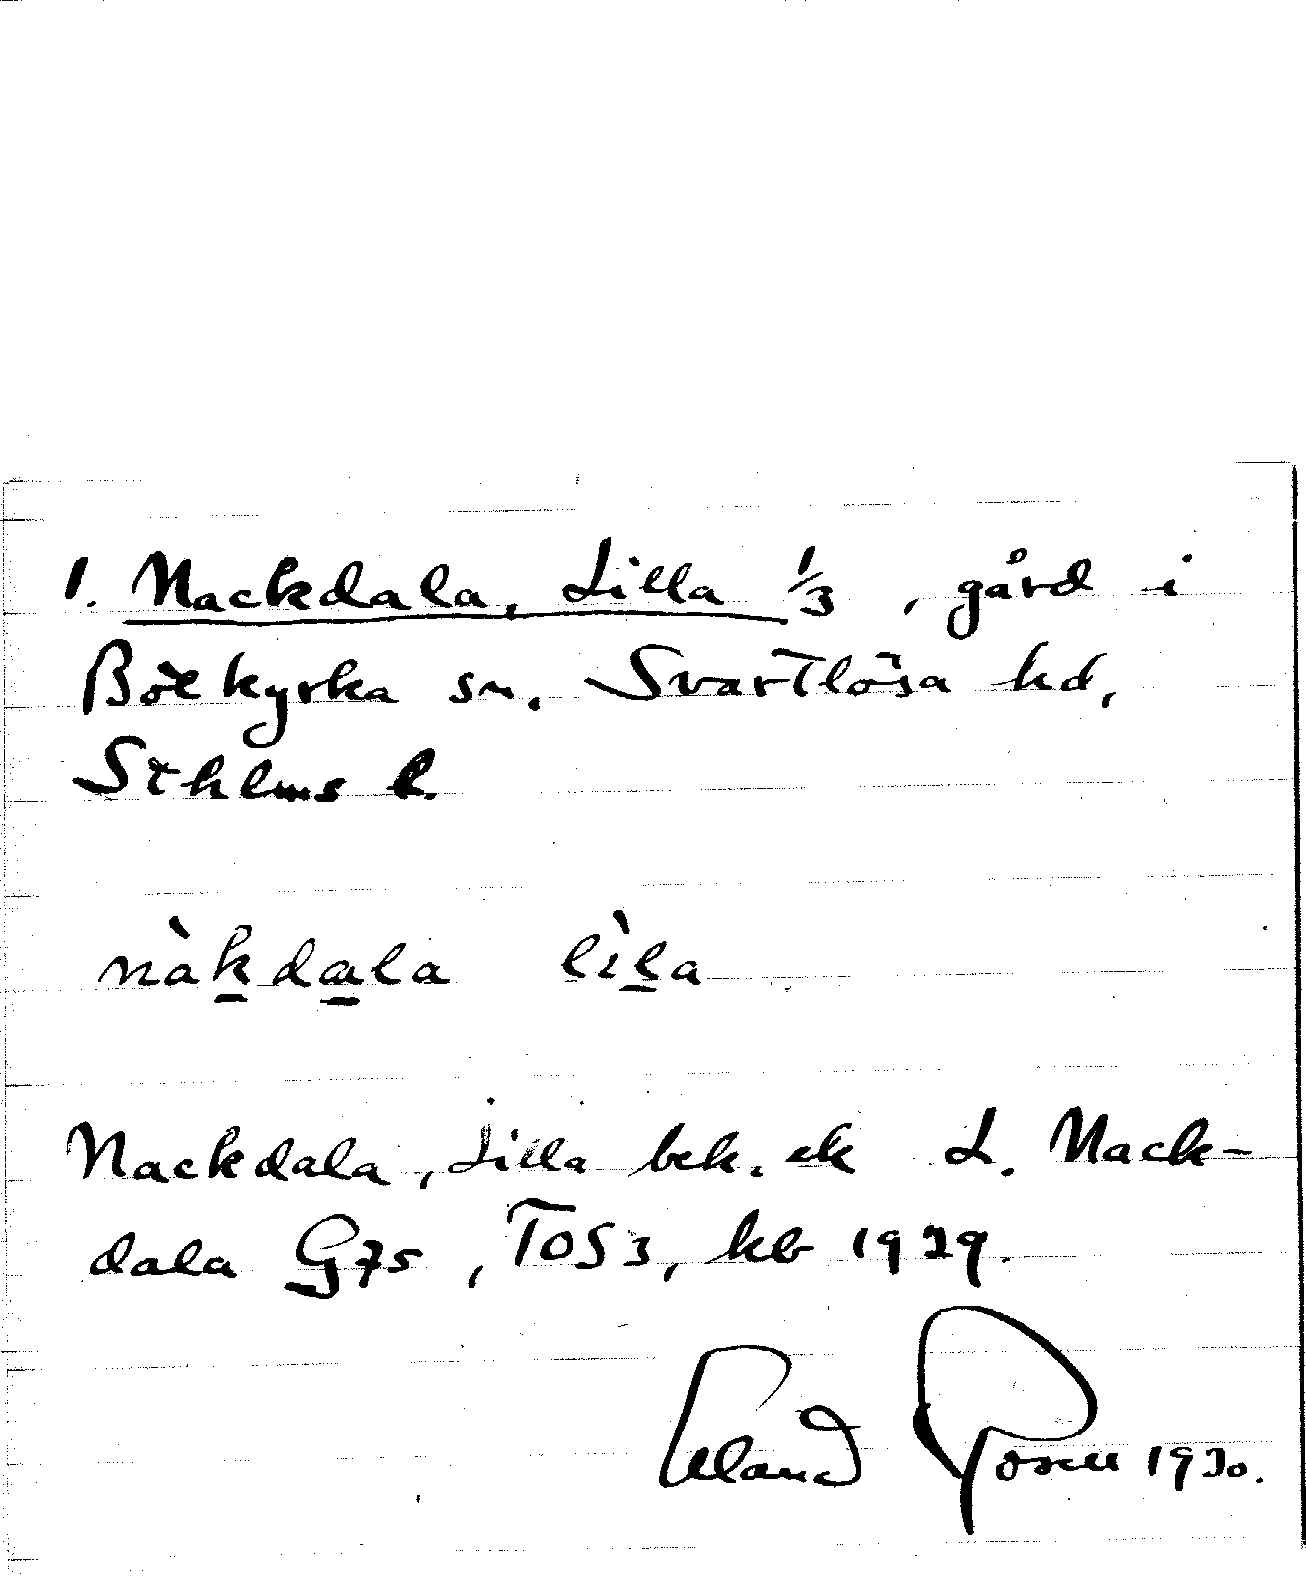 1. Nackdala, Lilla 1/3, gård i
Botkyrka sn. Svartlösa hd,
Sthlms l.
nàkdala lìla
Nackdala, Lilla bek. ek L. Nack-
dala G75, TOS3, kb 1929.
Eland Rosell 1930.